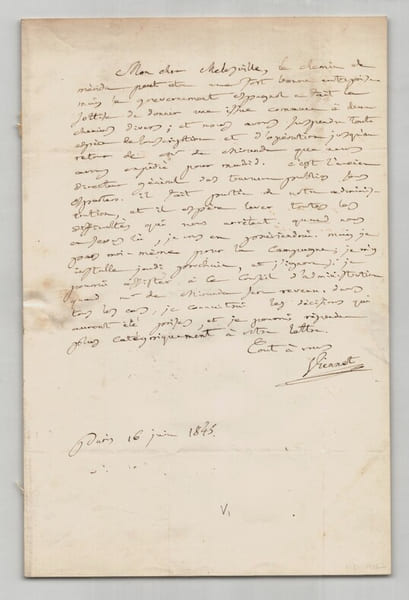 Mon cher Melesville, le chemin de
mérida peut etre une fort bonne entreprise
mais le gouvernement espagnol a fait la
sottise de donner une issue commune à deux
chemins divers; et nous avons suspendu toute
espèce de souscription et d'opération jusqu'au
retour de Mr de Miranda que nous
avons expédié pour madrid. c'est l'ancien
directeur général des travaux publics
il fait partie de notre adminis-
tration, et il espère lever toutes les
difficultés qui nous arrêtent. quand nous
en serons là, je vous en préviendrai. mais je
pars moi-même pour la Campagne, je m'y
installe jeudi prochain, et j'ignore si je
pourrai assister à le Conseil d'administration
quand Mr de Miranda sera revenu. dans
tous les cas, je connaitrai les décisions qui
auront été prises, et je pourrai répondre
plus catégoriquement à votre lettre.
Tout à vous
Viennet
Paris 16 juin 1845.
V,